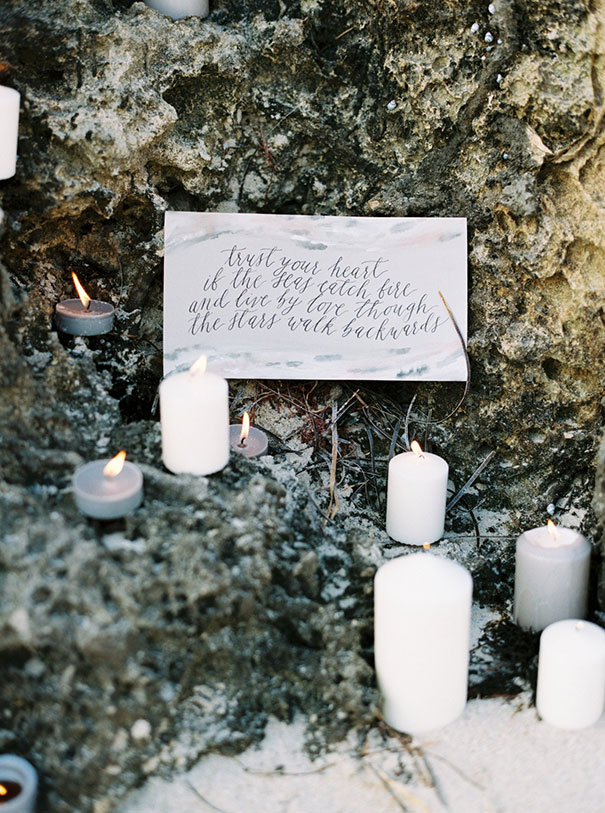 trust your heart
if the seas catch fire
and live by love though
the stars walk backwards